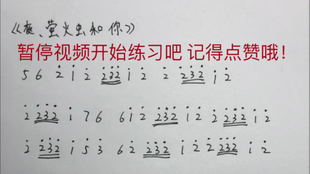 《夜、萤火虫和你》
暂停视频开始练习吧 记得点赞哦!
5 6 2 1 2 232 1 2 2 232 1 2
2 232 1 7 6 6 1 2 232 1 2 232 1
2 232 1 5 3 6 2 232 1 2 2 232 1 2